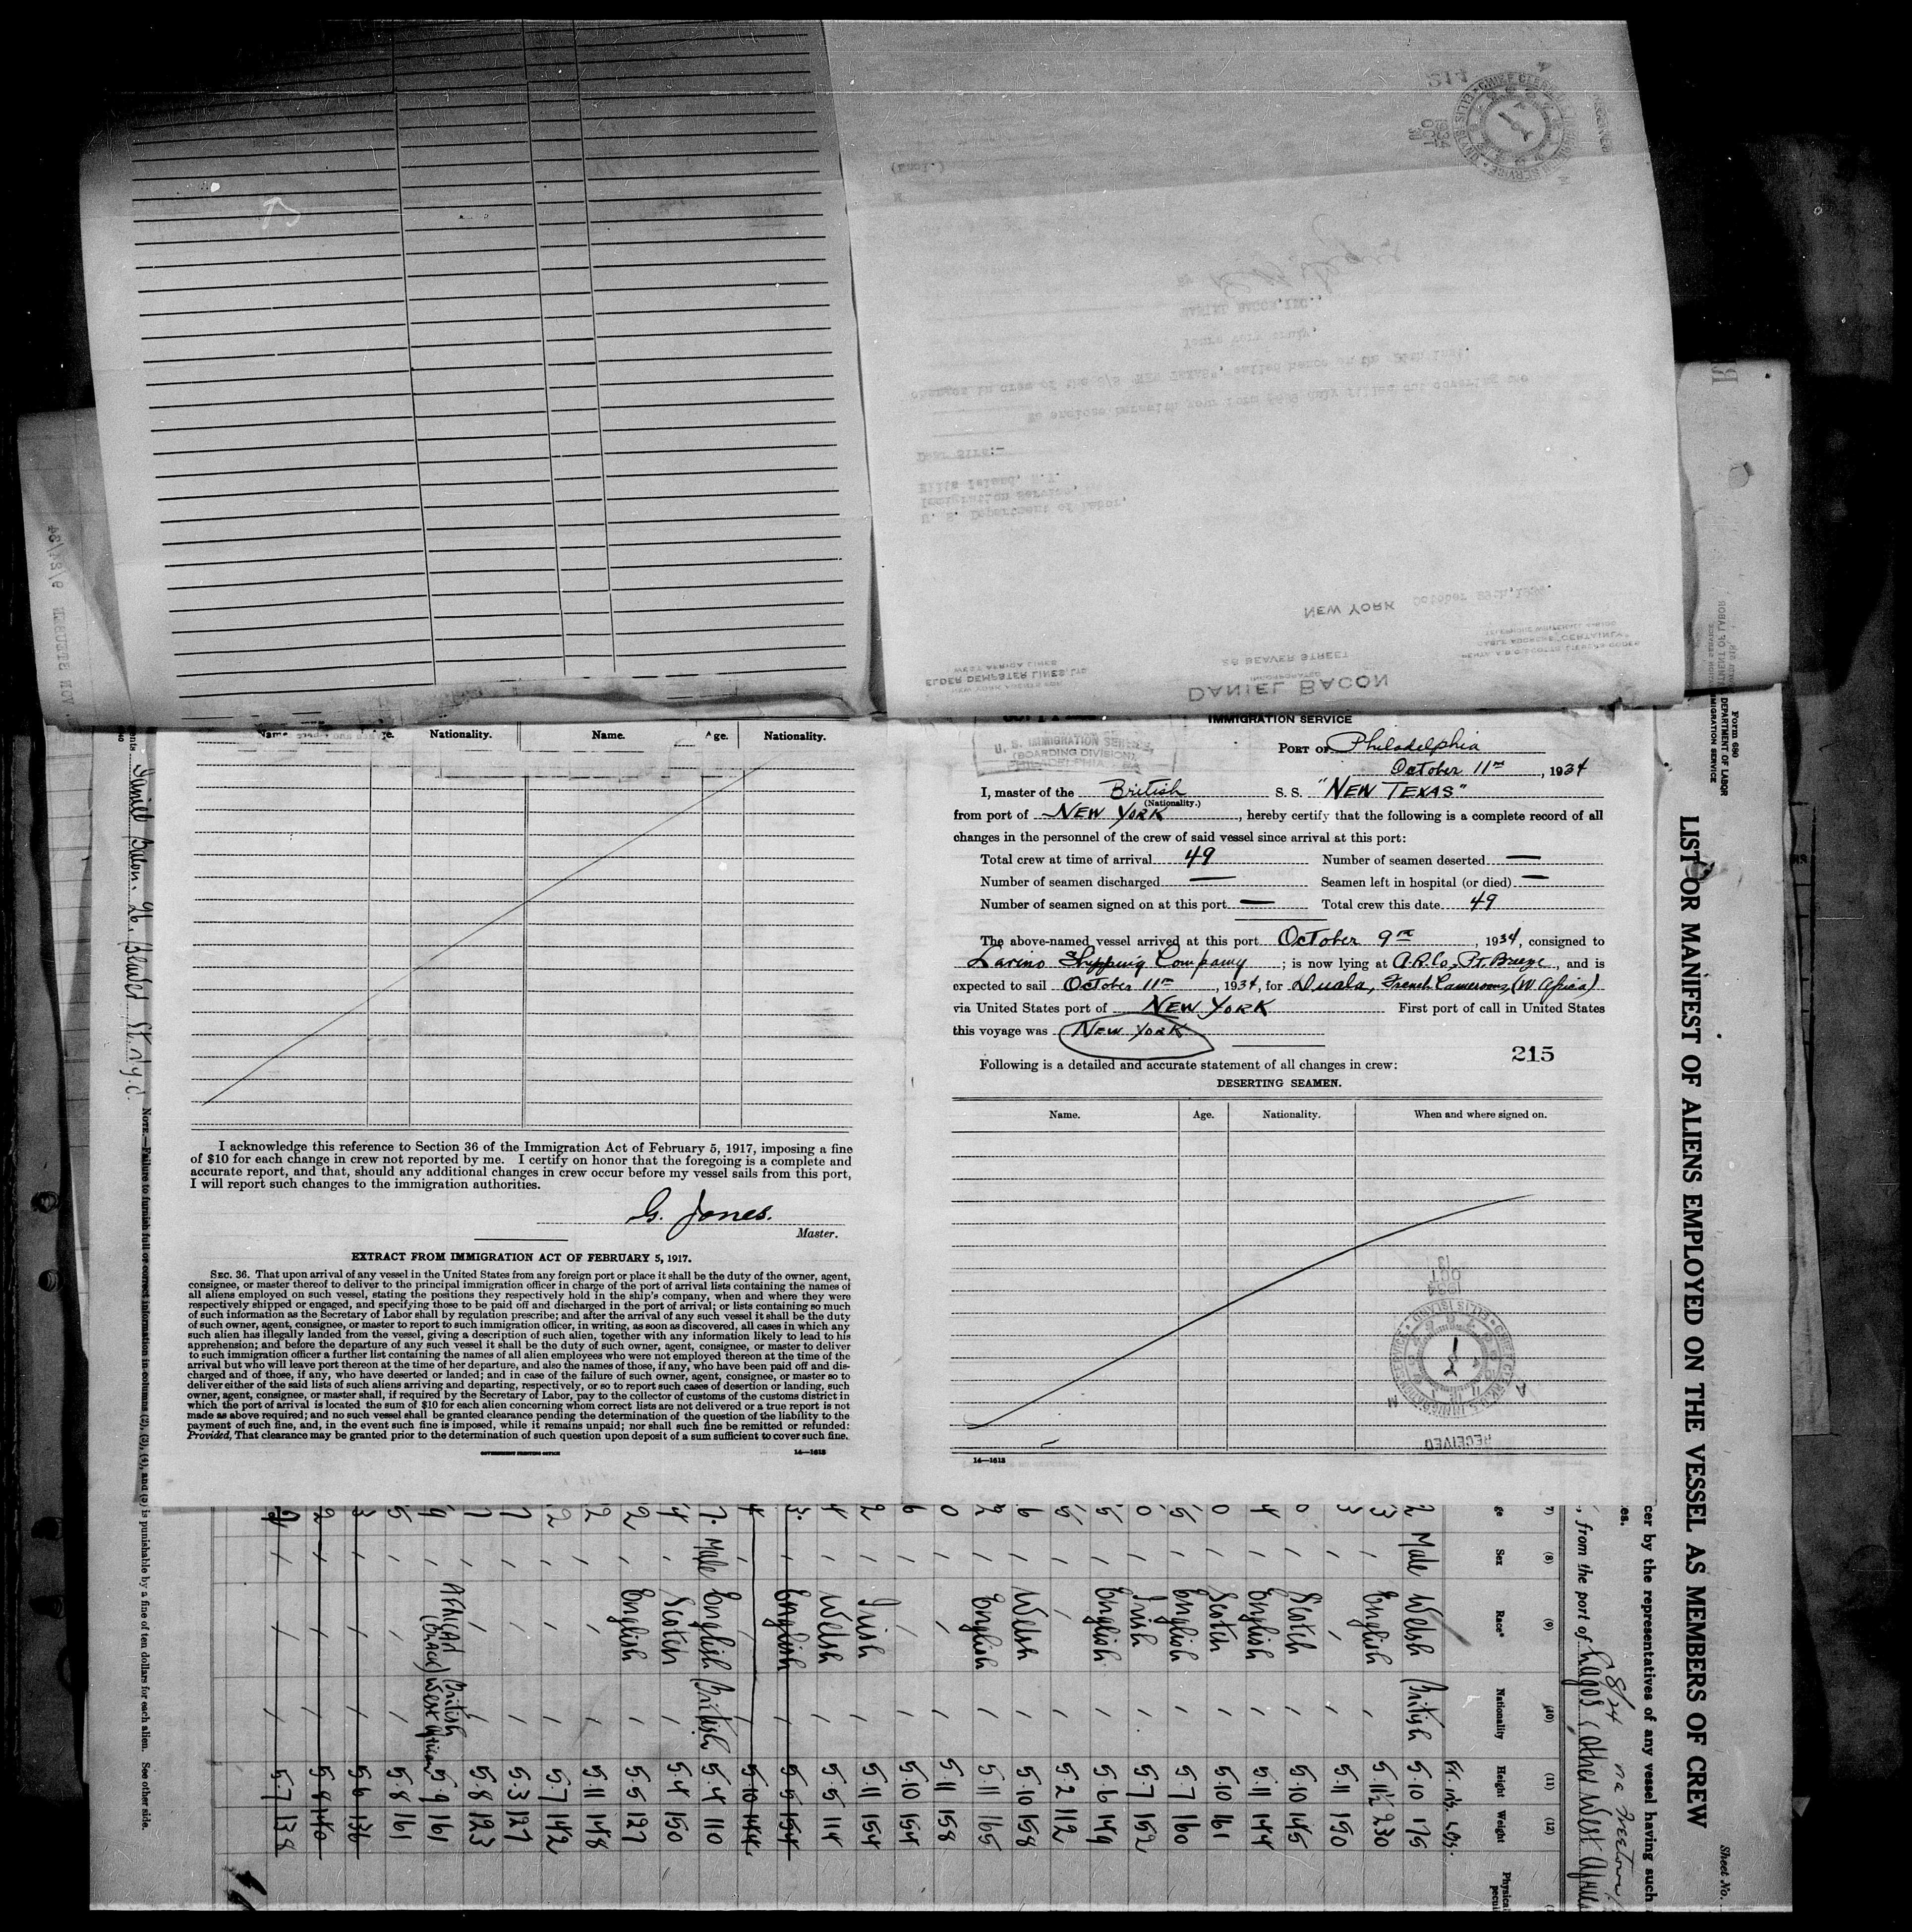 DANIEL BACON
INCORPORATED
26 BEAVER STREET
ELDER DEMPSTER LINES, LTD.
WEST AFRICA LINES
CABLE ADDRESS "CERTAINLY"
NEW YORK October 29th, 1934.
U. S. Department of Labor,
Immigration Service,
Ellis Island, N.Y.
Dear Sirs:-
We enclose herewith your Form 689 duly filled out covering the
changes in crew of the S/S "NEW TEXAS", sailed hence on the
Yours very truly,
DANIEL BACON, INC.,
(Encl.)
214
Name. Nationality. Name. Age. Nationality.
I acknowledge this reference to Section 36 of the Immigration Act of February 5, 1917, imposing a fine
of $10 for each change in crew not reported by me. I certify on honor that the foregoing is a complete and
accurate report, and that, should any additional changes in crew occur before my vessel sails from this port,
I will report such changes to the immigration authorities.
G. Jones.
Master.
EXTRACT FROM IMMIGRATION ACT OF FEBRUARY 5, 1917.
SEC. 36. That upon arrival of any vessel in the United States from any foreign port or place it shall be the duty of the owner, agent,
consignee, or master thereof to deliver to the principal immigration officer in charge of the port of arrival lists containing the names of
all aliens employed on such vessel, stating the positions they respectively hold in the ship's company, when and where they were
respectively shipped or engaged, and specifying those to be paid off and discharged in the port of arrival; or lists containing so much
of such information as the Secretary of Labor shall by regulation prescribe; and after the arrival of any such vessel it shall be the duty
of such owner, agent, consignee, or master to report to such immigration officer, in writing, as soon as discovered, all cases in which any
such alien has illegally landed from the vessel, giving a description of such alien, together with any information likely to lead to his
apprehension; and before the departure of any such vessel it shall be the duty of such owner, agent, consignee, or master to deliver
to such immigration officer a further list containing the names of all alien employees who were not employed thereon at the time of the
arrival but who will leave port thereon at the time of her departure, and also the names of those, if any, who have been paid off and dis-
charged and of those, if any, who have deserted or landed; and in case of the failure of such owner, agent, consignee, or master so to
deliver either of the said lists of such aliens arriving and departing, respectively, or so to report such cases of desertion or landing, such
owner, agent, consignee, or master shall, if required by the Secretary of Labor, pay to the collector of customs of the customs district in
which the port of arrival is located the sum of $10 for each alien concerning whom correct lists are not delivered or a true report is not
made as above required; and no such vessel shall be granted clearance pending the determination of the question of the liability to the
payment of such fine, and, in the event such fine is imposed, while it remains unpaid; nor shall such fine be remitted or refunded:
Provided, That clearance may be granted prior to the determination of such question upon deposit of a sum sufficient to cover such fine.
GOVERNMENT PRINTING OFFICE 14—1613
IMMIGRATION SERVICE
U. S. IMMIGRATION SERVICE,
(BOARDING DIVISION)
PHILADELPHIA, PA.
PORT OF Philadelphia
October 11th, 1934
I, master of the British S. S. "NEW TEXAS"
(Nationality.)
from port of NEW YORK, hereby certify that the following is a complete record of all
changes in the personnel of the crew of said vessel since arrival at this port:
Total crew at time of arrival 49 Number of seamen deserted —
Number of seamen discharged — Seamen left in hospital (or died) —
Number of seamen signed on at this port — Total crew this date 49
The above-named vessel arrived at this port October 9th, 1934, consigned to
Larino Shipping Company; is now lying at A.R.Co, Pt. Breeze, and is
expected to sail October 11th, 1934, for Duala, French Cameroons, (W. Africa)
via United States port of NEW YORK First port of call in United States
this voyage was NEW YORK
215
Following is a detailed and accurate statement of all changes in crew:
DESERTING SEAMEN.
Name. Age. Nationality. When and where signed on.
1934
OCT
13
RECEIVED
14—1613
Form 680
DEPARTMENT OF LABOR
IMMIGRATION SERVICE
LIST OR MANIFEST OF ALIENS EMPLOYED ON THE VESSEL AS MEMBERS OF CREW
Sheet No.
cer by the representatives of any vessel having such
, from the port of Lagos (other West
(7) (8) (9) (10) (11) (12)
Sex Race* Nationality Height Weight
Ft. ins. Lbs.
2 Male Welsh British 5.10 175
3 / English / 5.11½ 230
3 / / / 5.11 150
0 / Scotch / 5.10 145
4 / English / 5.11 144
0 / Scotch / 5.10 161
5 / English / 5.7 160
0 / Irish / 5.7 152
5 / English / 5.6 149
5 / / / 5.2 112
6 / Welsh / 5.10 158
2 / English / 5.11 165
0 / / / 5.11 158
6 / / / 5.10 154
2 / Irish / 5.11 154
4 / Welsh / 5.5 114
3 / English / 5.5 154
4 / / / 5.10 144
7 Male English British 5.4 110
4 / Scotch / 5.4 150
2 / English / 5.5 127
2 / / / 5.11 148
2 / / / 5.7 142
7 / / / 5.3 127
7 / / / 5.8 123
9 / African (Black) British West African 5.9 161
5 / / / 5.8 161
3 / / / 5.6 136
2 / / / 5.8 140
/ / / 5.7 138
Daniel Bacon. 26, Beaver St. N.Y.C.
NOTE.—Failure to furnish full or correct information in columns (2), (3), (4), and (5) is punishable by a fine of ten dollars for each alien. See other side.
VON STEUBEN 9/21/34